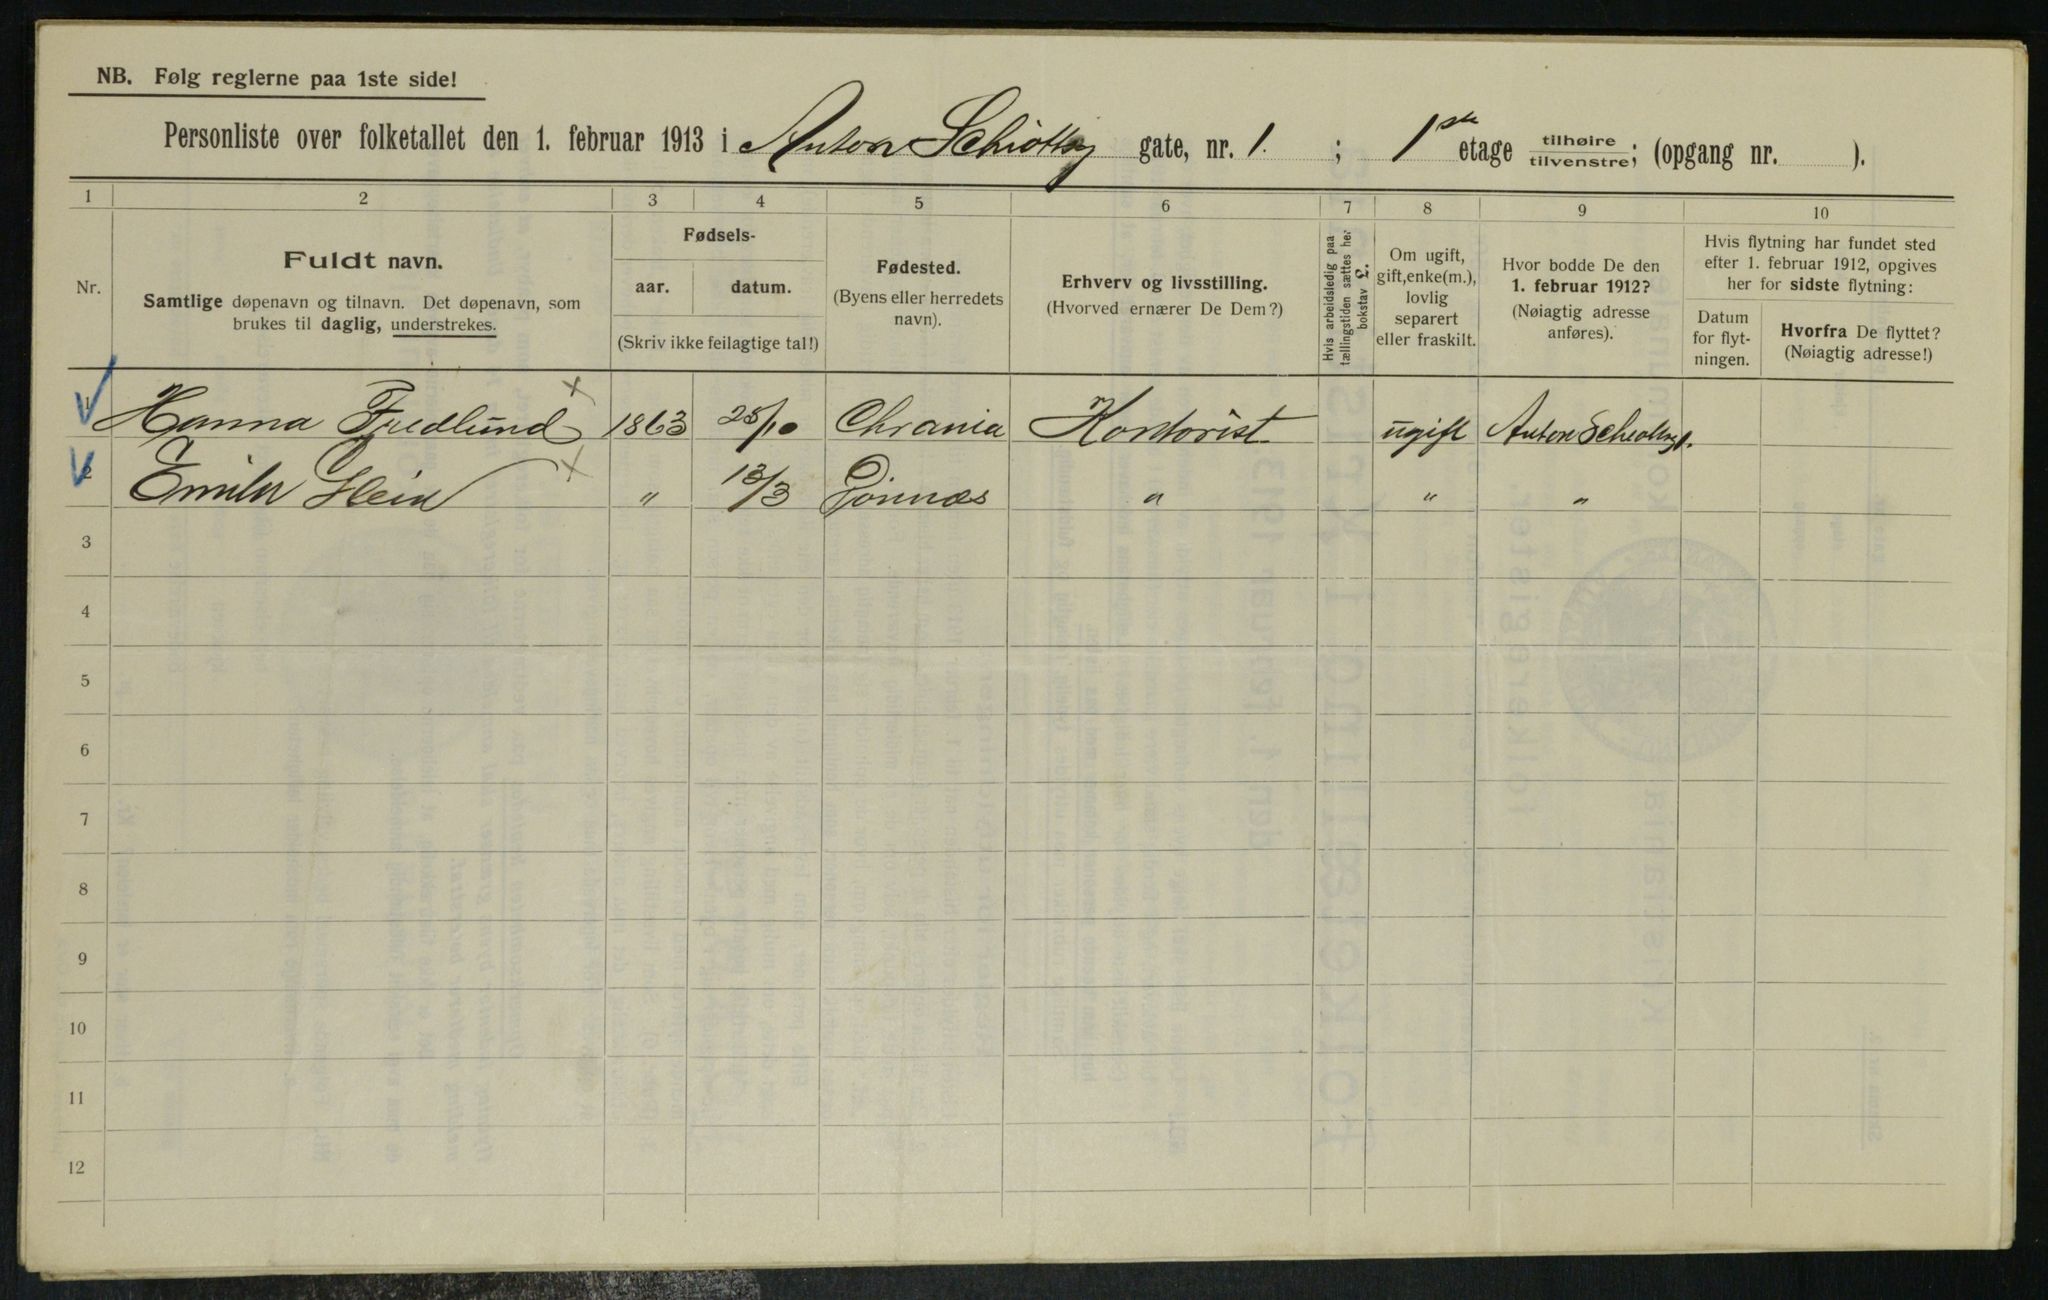 NB. Følg reglerne paa 1ste side!
Personliste over folketallet den 1. februar 1913 i Anton Schiøtts gate, nr. 1. ; 1ste etage tilhøire tilvenstre; (opgang nr. ).
1 2 3 4 5 6 7 8 9 10
Nr.
Fuldt navn.
Samtlige døpenavn og tilnavn. Det døpenavn, som
brukes til daglig, understrekes.
Fødsels-
aar. datum.
(Skriv ikke feilagtige tal!)
Fødested.
(Byens eller herredets
navn).
Erhverv og livsstilling.
(Hvorved ernærer De Dem?)
Hvis arbeidsledig paa
tællingstiden sættes her
bokstav L.
Om ugift,
gift, enke(m.),
lovlig
separert
eller fraskilt.
Hvor bodde De den
1. februar 1912?
(Nøiagtig adresse
anføres).
Hvis flytning har fundet sted
efter 1. februar 1912, opgives
her for sidste flytning:
Datum
for flyt-
ningen.
Hvorfra De flyttet?
(Nøiagtig adresse!)
1 Hanna Fredlund 1863 25/10 Chrania Kontorist ugift Anton Schiøttsg 1.
2 Hein „ 13/3 „ „ „
3
4
5
6
7
8
9
10
11
12